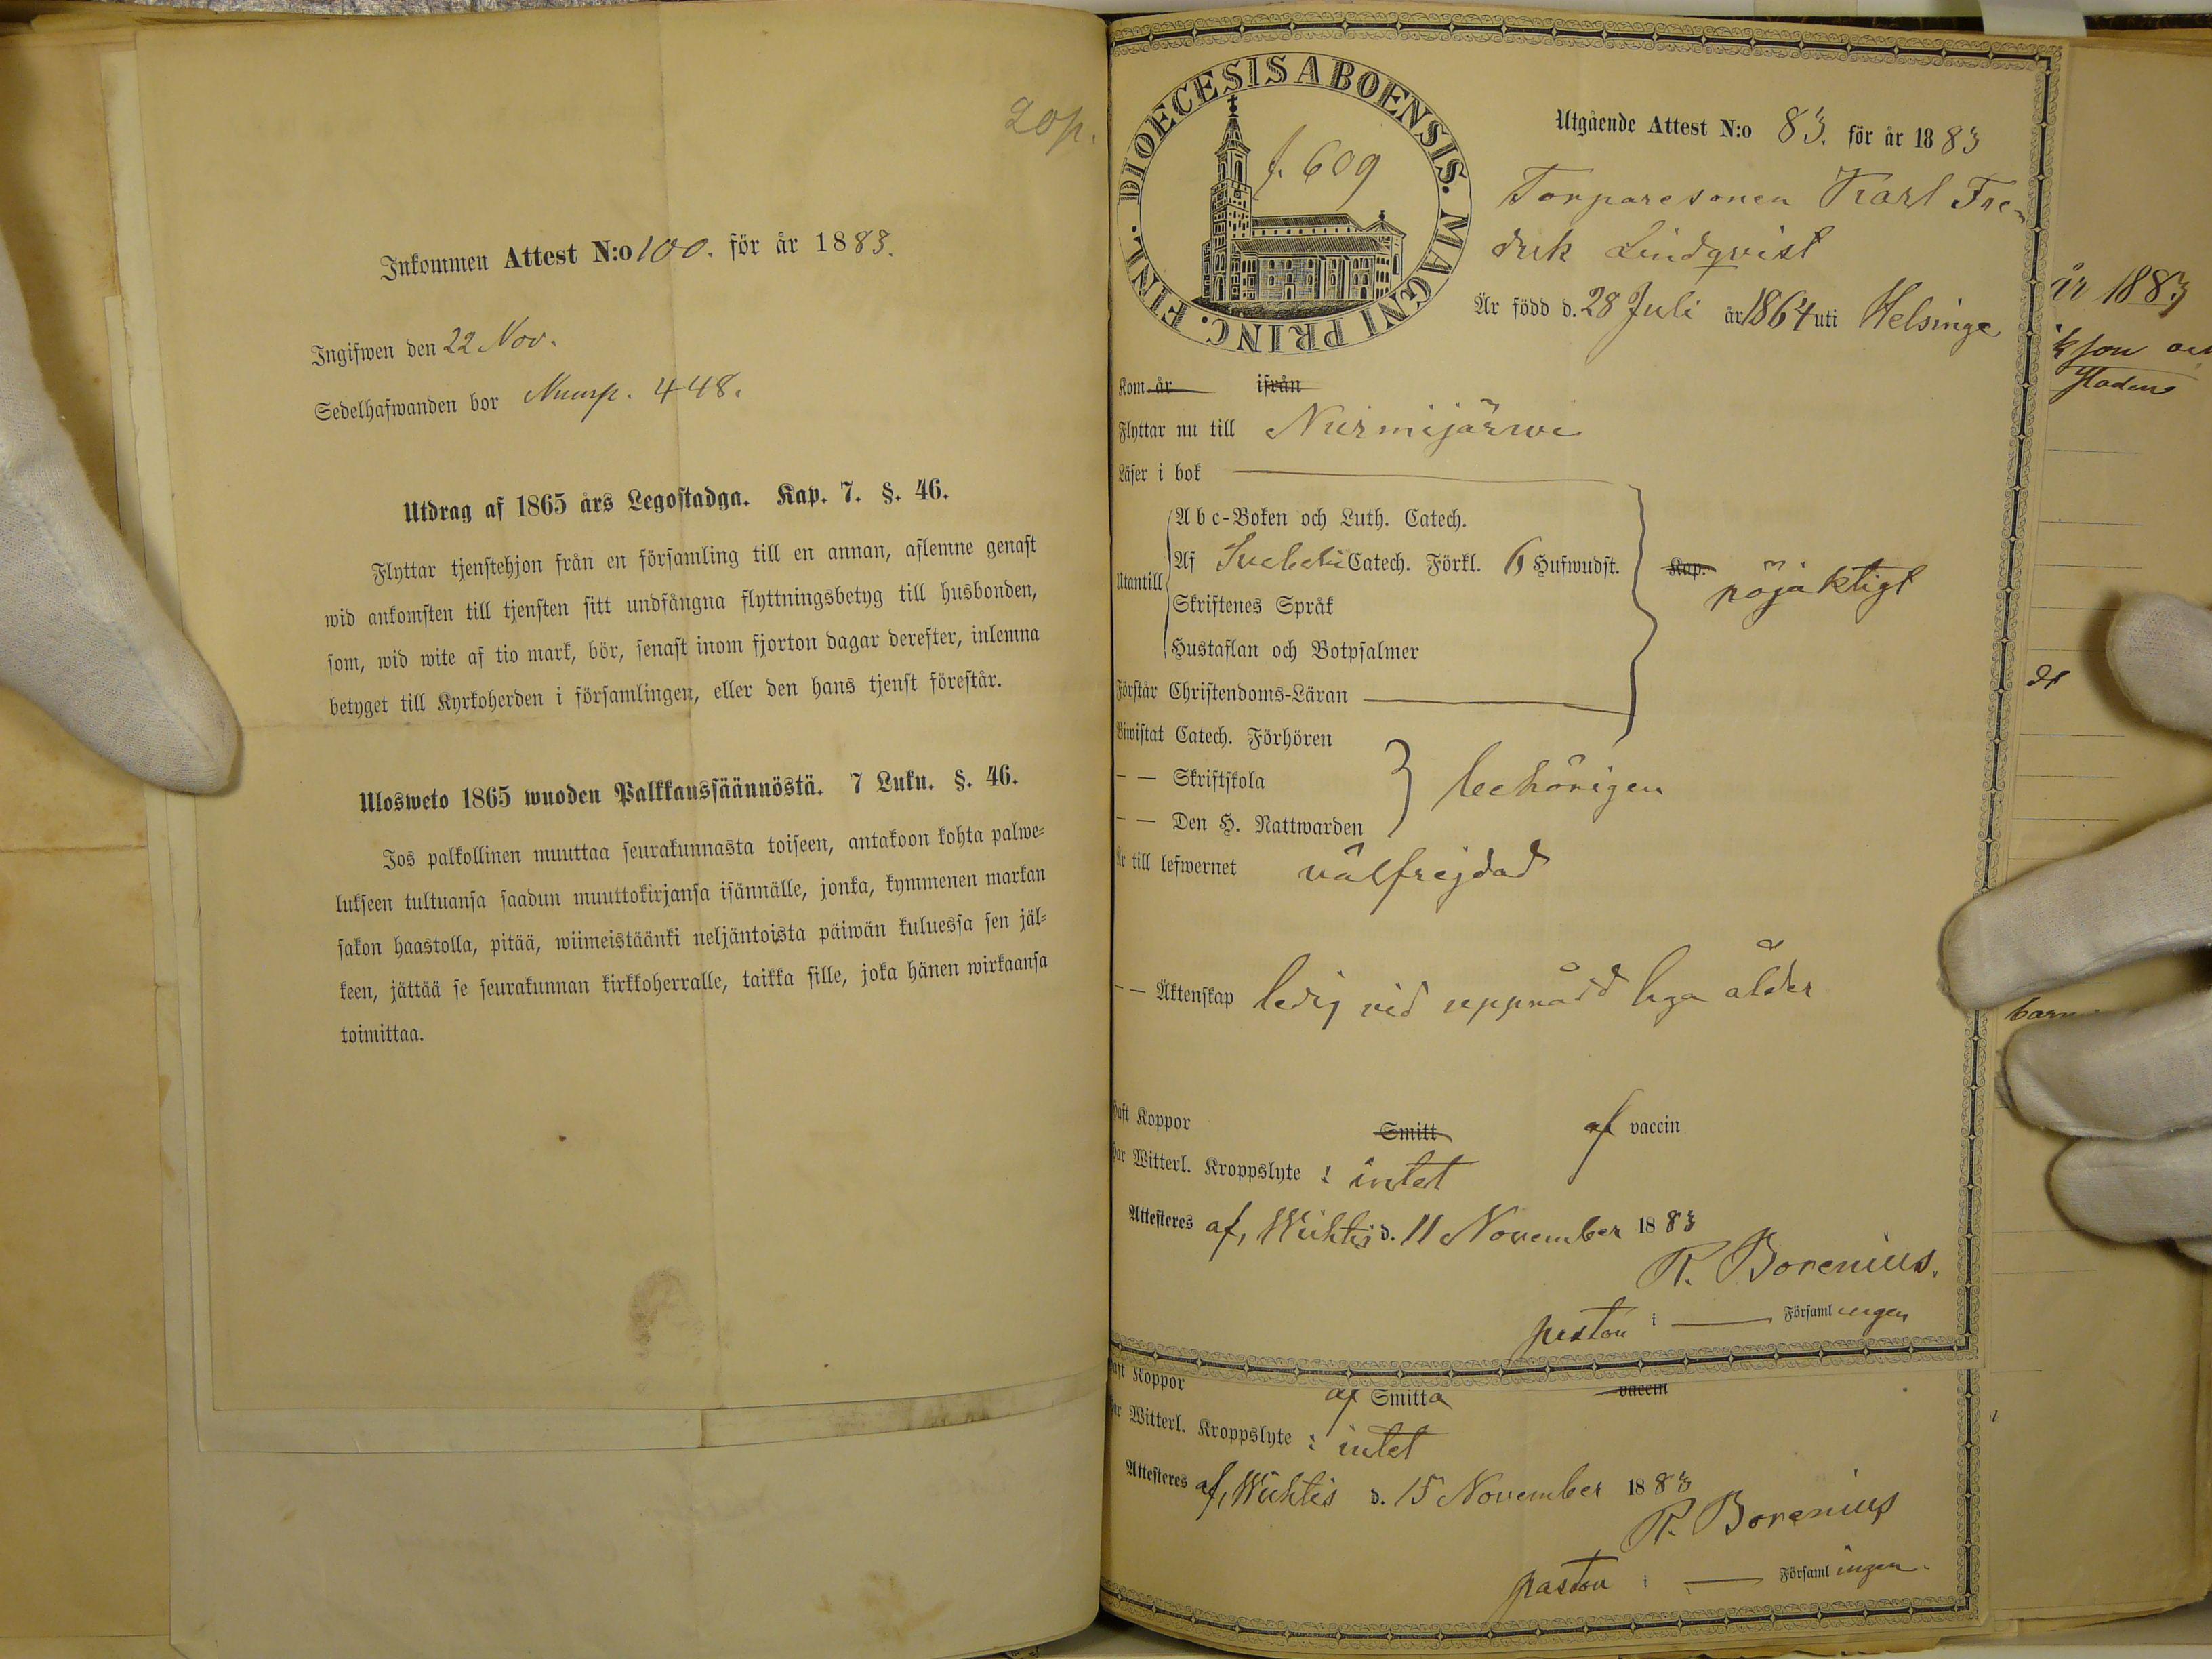 20p.
Inkommen Attest N:o 100. för år 1883.
Ingifwen den 22 Nov.
Sedelhafwanden bor Nump. 448.
Utdrag af 1865 års Legostadga. Kap. 7. §. 46.
Flyttar tjenstehjon från en församling till en annan, aflemne genast
wid ankomsten till tjensten sitt undfångna flyttningsbetyg till husbonden,
som, wid wite af tio mark, bör, senast inom fjorton dagar derefter, inlemna
betyget till Kyrkoherden i församlingen, eller den hans tjenst förestår.
Ulosweto 1865 wuoden Palkkaussäännöstä. 7 Luku. §. 46.
Jos palkollinen muuttaa seurakunnasta toiseen, antakoon kohta palwe-
lukseen tultuansa saadun muuttokirjansa isännälle, jonka, kymmenen markan
sakon haastolla, pitää, wiimeistäänki neljäntoista päiwän kuluessa sen jäl-
keen, jättää se seurakunnan kirkkoherralle, taikka sille, joka hänen wirkaansa
toimittaa.
DIOECESIS ABOENSIS. MAGNI PRINC. FINL.
f. 609
Utgående Attest N:o 83. för år 1883
Torparesonen Karl Fre-
drik Lindqvist
Är född d. 28 Juli år 1864 uti Helsinge
Kom år ifrån
Flyttar nu till Nurmijärwi
Läser i bok
Abc-Boken och Luth. Catech.
Utantill Af Svebelii Catech. Förkl. 6 Hufwudst. Kap. nöjaktigt
Skriftenes Språk
Hustaflan och Botpsalmer
Förstår Christendoms-Läran
Biwistat Catech. Förhören
— — Skriftskola behörigen
— — Den H. Nattwarden
Är till lefwernet välfrejdad
— — Äktenskap ledig vid uppnådd laga ålder
Haft Koppor Smitt af vaccin
Har Witterl. Kroppslyte : intet
Attesteres af, Wichtis d. 11 November 1883
R. Borenius.
pastor i — Församlingen
Haft Koppor af Smitta vaccin
Har Witterl. Kroppslyte : intet
Attesteres af, Wichtis d. 15 November 1883
R. Borenius
pastor i — Församlingen.
år 1883